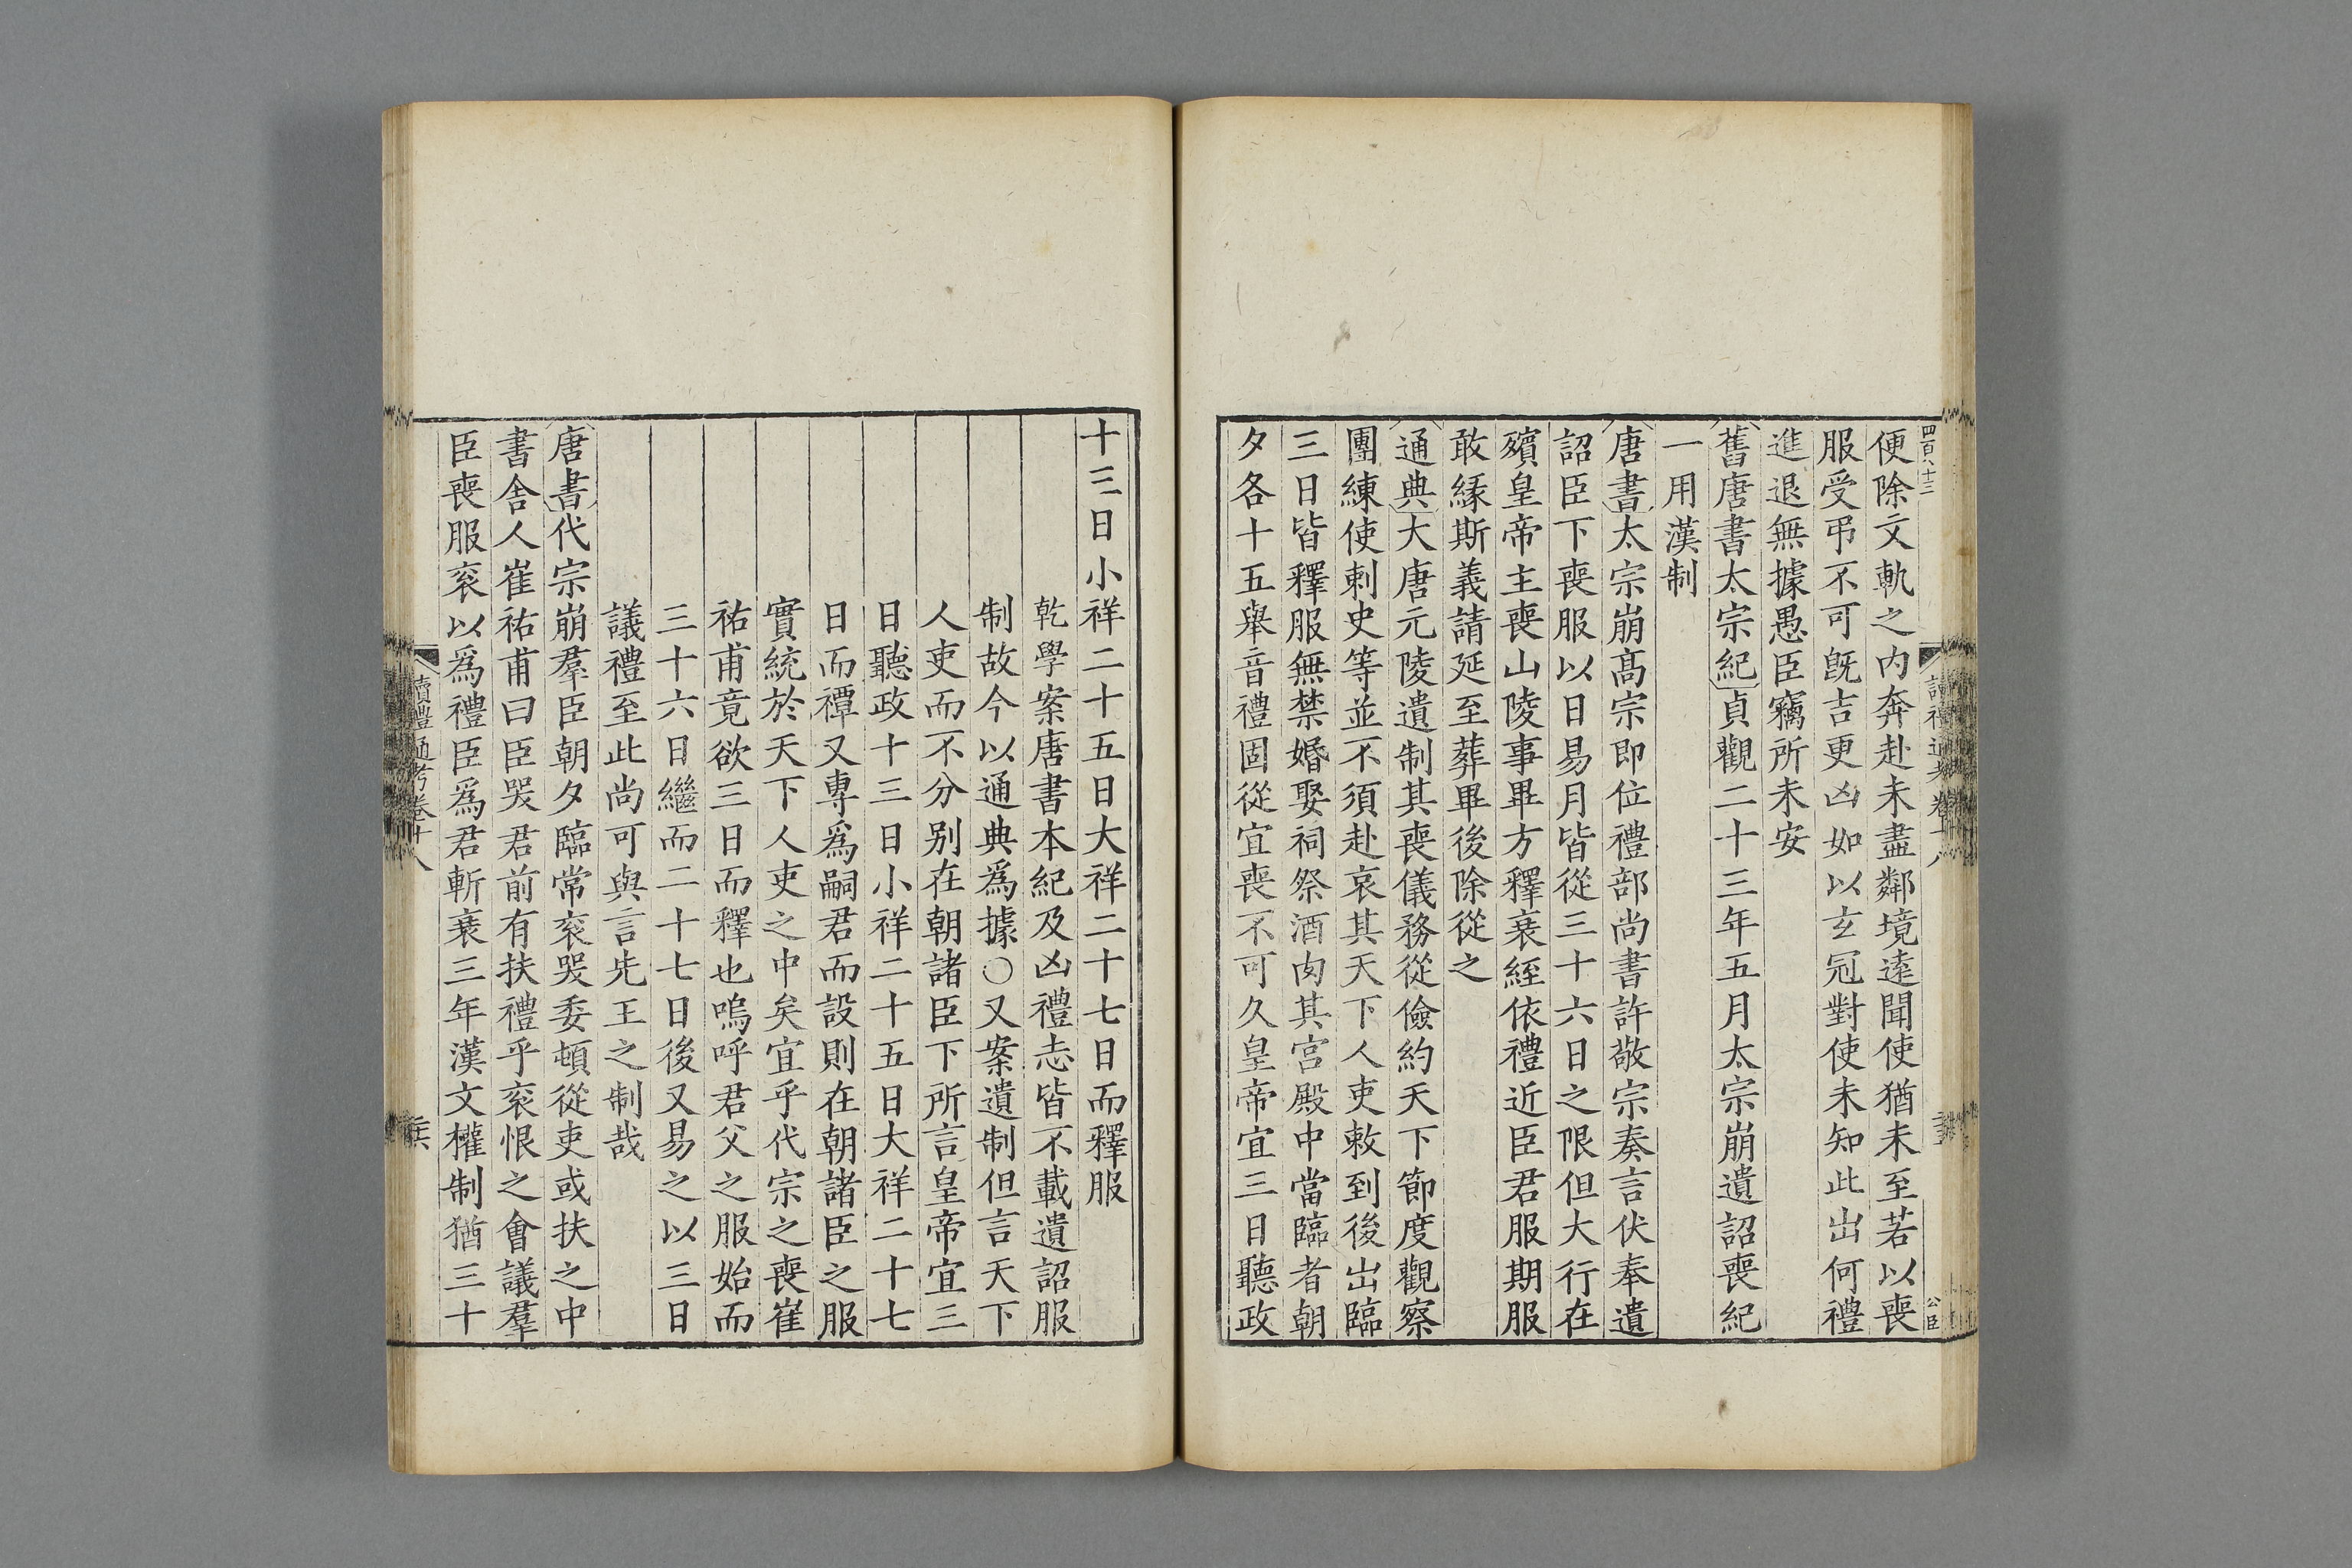 四百八十三
便除文軌之内奔赴未盡鄰境遠聞使猶未至若以喪
服受弔不可既吉更凶如以玄冠對使未知此出何禮
進退無據愚臣竊所未安
舊唐書太宗紀貞觀二十三年五月太宗崩遺詔喪紀
一用漢制
唐書太宗崩高宗即位禮部尚書許敬宗奏言伏奉遺
詔臣下喪服以日易月皆從三十六日之限但大行在
殯皇帝主喪山陵事畢方釋衰絰依禮近臣君服期服
敢緣斯義請延至葬畢後除從之
通典大唐元陵遺制其喪儀務從儉約天下節度觀察
團練使刺史等並不須赴哀其天下人吏敕到後出臨
三日皆釋服無禁婚娶祠祭酒肉其宮殿中當臨者朝
夕各十五舉音禮固從宜喪不可久皇帝宜三日聽政
公臣
十三日小祥二十五日大祥二十七日而釋服
乾學案唐書本紀及凶禮志皆不載遺詔服
制故今以通典爲據○又案遺制但言天下
人吏而不分別在朝諸臣下所言皇帝宜三
日聽政十三日小祥二十五日大祥二十七
日而禫又專爲嗣君而設則在朝諸臣之服
實統於天下人吏之中矣宜乎代宗之喪崔
祐甫竟欲三日而釋也嗚呼君父之服始而
三十六日繼而二十七日後又易之以三日
議禮至此尚可與言先王之制哉
唐書代宗崩羣臣朝夕臨常袞哭委頓從吏或扶之中
書舍人崔祐甫曰臣哭君前有扶禮乎袞恨之會議羣
臣喪服袞以爲禮臣爲君斬衰三年漢文權制猶三十
讀禮通考卷十八